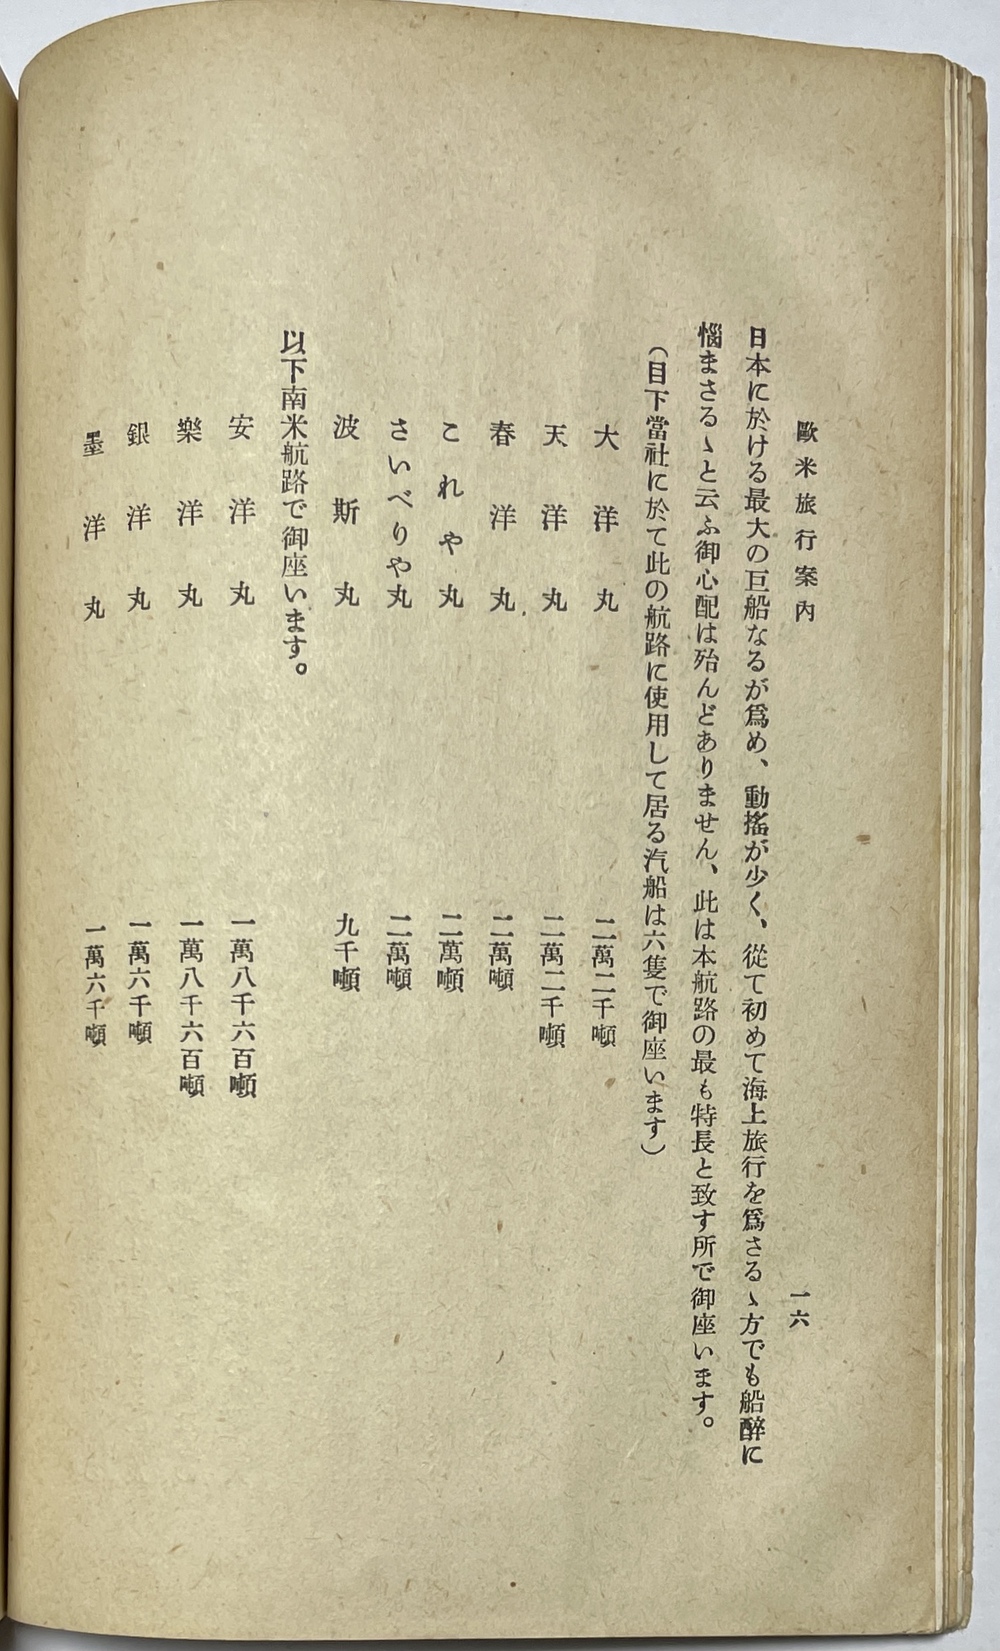 歐米旅行案内
一六
日本に於ける最大の巨船なるが爲め、動搖が少く、從て初めて海上旅行を爲さるゝ方でも船醉に
惱まさるゝと云ふ御心配は殆んどありません、此は本航路の最も特長と致す所で御座います。
(目下當社に於て此の航路に使用して居る汽船は六隻で御座います)
大洋丸 二萬二千噸
天洋丸 二萬二千噸
春洋丸 二萬噸
これや丸 二萬噸
さいべりや丸 二萬噸
波斯丸 九千噸
以下南米航路で御座います。
安洋丸 一萬八千六百噸
樂洋丸 一萬八千六百噸
銀洋丸 一萬六千噸
墨洋丸 一萬六千噸